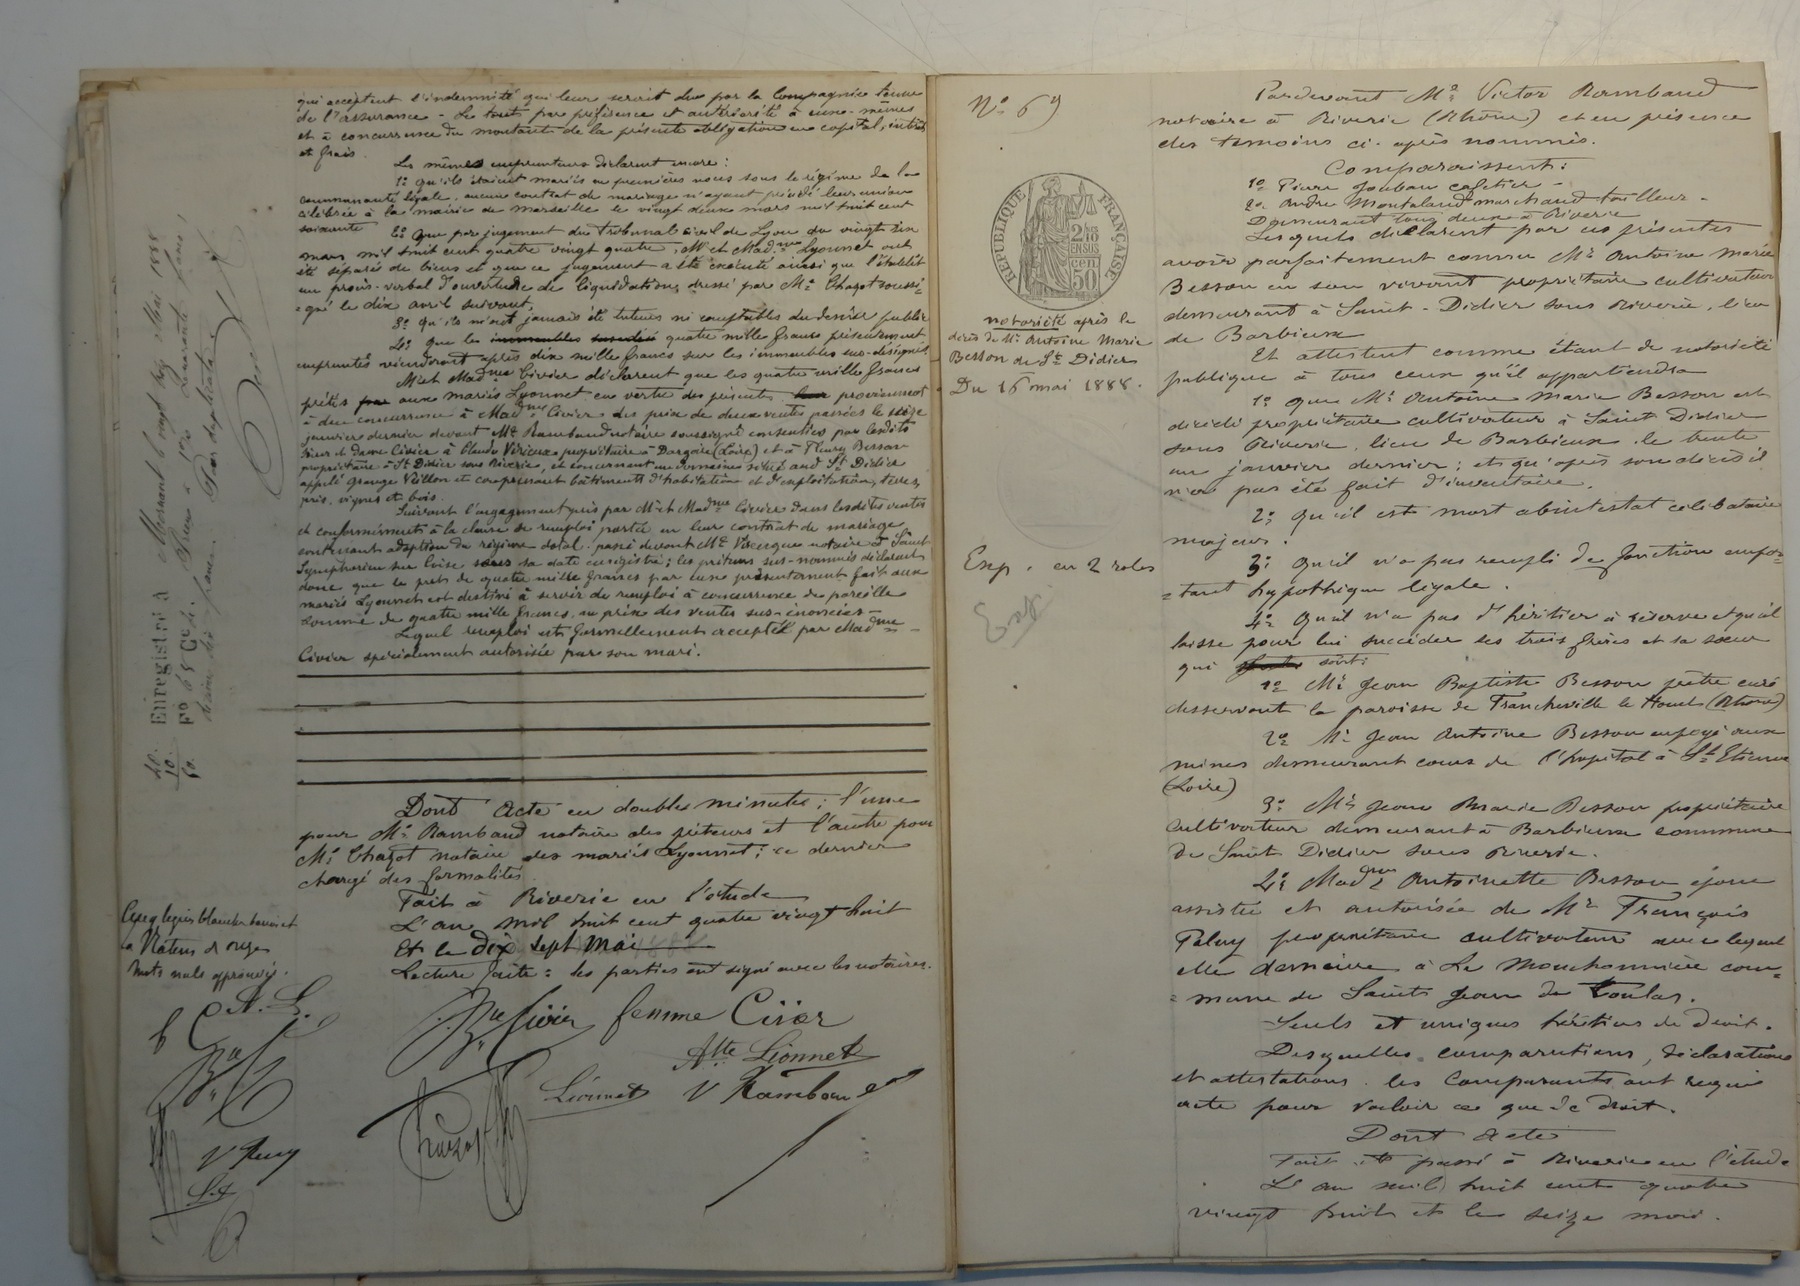 qui acceptent l'indemnité qui leur serait due par la Compagnie tenue
de l'assurance - Le tout par préférence et antériorité à eux-mêmes
et à concurrence du montant de la présente obligation en capital, intérêts
et frais.
Les mêmes emprunteurs déclarent encore :
1° qu'ils étaient mariés en premières noces sous le régime de la
communauté légale, aucun contrat de mariage n'ayant précédé leur union
célébrée à la mairie de Marseille le vingt deux mars mil huit cent
soixante
2° Que par jugement du Tribunal civil de Lyon du vingt six
mars mil huit cent quatre vingt quatre, Mr et Madme Lyonnet ont
été séparés de biens et que ce jugement a été exécuté ainsi que l'établit
un procès-verbal d'ouverture de liquidation dressé par Me Chazot soussi-
gné le dix avril suivant.
3° Qu'ils n'ont jamais été tuteurs ni comptables de deniers publics
4° Que les immeubles quatre mille francs présentement
empruntés viendront après dix mille francs sur les immeubles sus-désignés
Mr et Madme Civier déclarent que les quatre mille francs
prêtés par aux mariés Lyonnet en vertu des présentes proviennent
à due concurrence à Madme Civier des prix de deux ventes passées le seize
janvier dernier devant Me Rambaud notaire soussigné consenties par lesdits
sieur et dame Civier à Claude Véricux propriétaire à Dargoire (Loire) et à Fleury Besson
propriétaire à St Didier sous Riverie, et concernant un domaine situé aud St Didier
appelé Grange Vellon et comprenant bâtiments d'habitation et d'exploitation, terres,
prés, vignes et bois.
Suivant l'engagement pris par Mr et Madme Civier dans lesdites ventes
et conformément à la clause de remploi portée en leur contrat de mariage
contenant adoption du régime dotal passé devant Me notaire à Saint
Symphorien sur Coise sous sa date enregistré ; les prêteurs sus-nommés déclarent
donc que le prêt de quatre mille francs par eux présentement fait aux
mariés Lyonnet est destiné à servir de remploi à concurrence de pareille
somme de quatre mille francs, au prix des ventes sus-énoncées -
Lequel remploi est formellement accepté par Madme
Civier spécialement autorisée par son mari.
Dont Acte en doubles minutes ; l'une
pour Me Rambaud notaire des prêteurs et l'autre pour
Me Chazot notaire des mariés Lyonnet ; ce dernier
chargé des formalités.
Fait à Riverie en l'étude
L'an mil huit cent quatre vingt huit
Et le dix sept mai
Lecture faite : les parties ont signé avec les notaires.
Civier femme Civier
Atte Lionnet
Lionnet V Rambaud
Chazot
Enregistré à Mornant le vingt six Mai 1888
Fo 65 Ce
40.
10.
50.
mots nuls approuvés.
A. L.
No 69
RÉPUBLIQUE FRANÇAISE
2/10 EN SUS
50 cen
notoriété après le
décès de Mr Antoine Marie
Besson de St Didier
Du 16 mai 1888.
Exp. en 2 roles
Exp
Pardevant Me Victor Rambaud
notaire à Riverie (Rhône) et en présence
des temoins ci-après nommés.
Comparaissent :
1° Pierre Jouban cafetier -
2° André Montaland marchand tailleur -
Demeurant tous deux à Riverie
Lesquels déclarent par ces présentes
avoir parfaitement connu Mr Antoine Marie
Besson en son vivant propriétaire cultivateur
demeurant à Saint-Didier sous Riverie, lieu
de Barbieux
Et attestent comme étant de notoriété
publique à tous ceux qu'il appartiendra
1° que Mr Antoine Marie Besson est
décédé propriétaire cultivateur à Saint Didier
sous Riverie, lieu de Barbieux, le trente
un janvier dernier ; et qu'après son décès il
n'a pas été fait d'inventaire.
2° Qu'il est mort abintestat célibataire
majeur.
3° Qu'il n'a pas rempli de fonction empor-
=tant hypothèque légale.
4° Qu'il n'a pas d'héritier à réserve et qu'il
laisse pour lui succéder ses trois frères et sa soeur
qui sont :
1° Mr Jean Baptiste Besson prêtre curé
desservant la paroisse de Francheville le Haut (Rhône)
2° Mr Jean Antoine Besson employé aux
mines demeurant cours de l'hopital à St Etienne
(Loire)
3° Mr Jean Marie Besson propriétaire
cultivateur demeurant à Barbieux commune
de Saint Didier sous Riverie.
4° Madme Antoinette Besson épouse
assistée et autorisée de Mr François
propriétaire cultivateur avec lequel
elle demeure à La Mouchonnière com-
=mune de Saint Jean de Toulas.
Seuls et uniques héritiers de droit.
Desquelles comparutions, déclarations
et attestations les comparants ont requis
acte pour valoir ce que de droit.
Dont Acte
Fait et passé à Riverie en l'étude
L'an mil huit cent quatre
vingt huit et le seize mai.